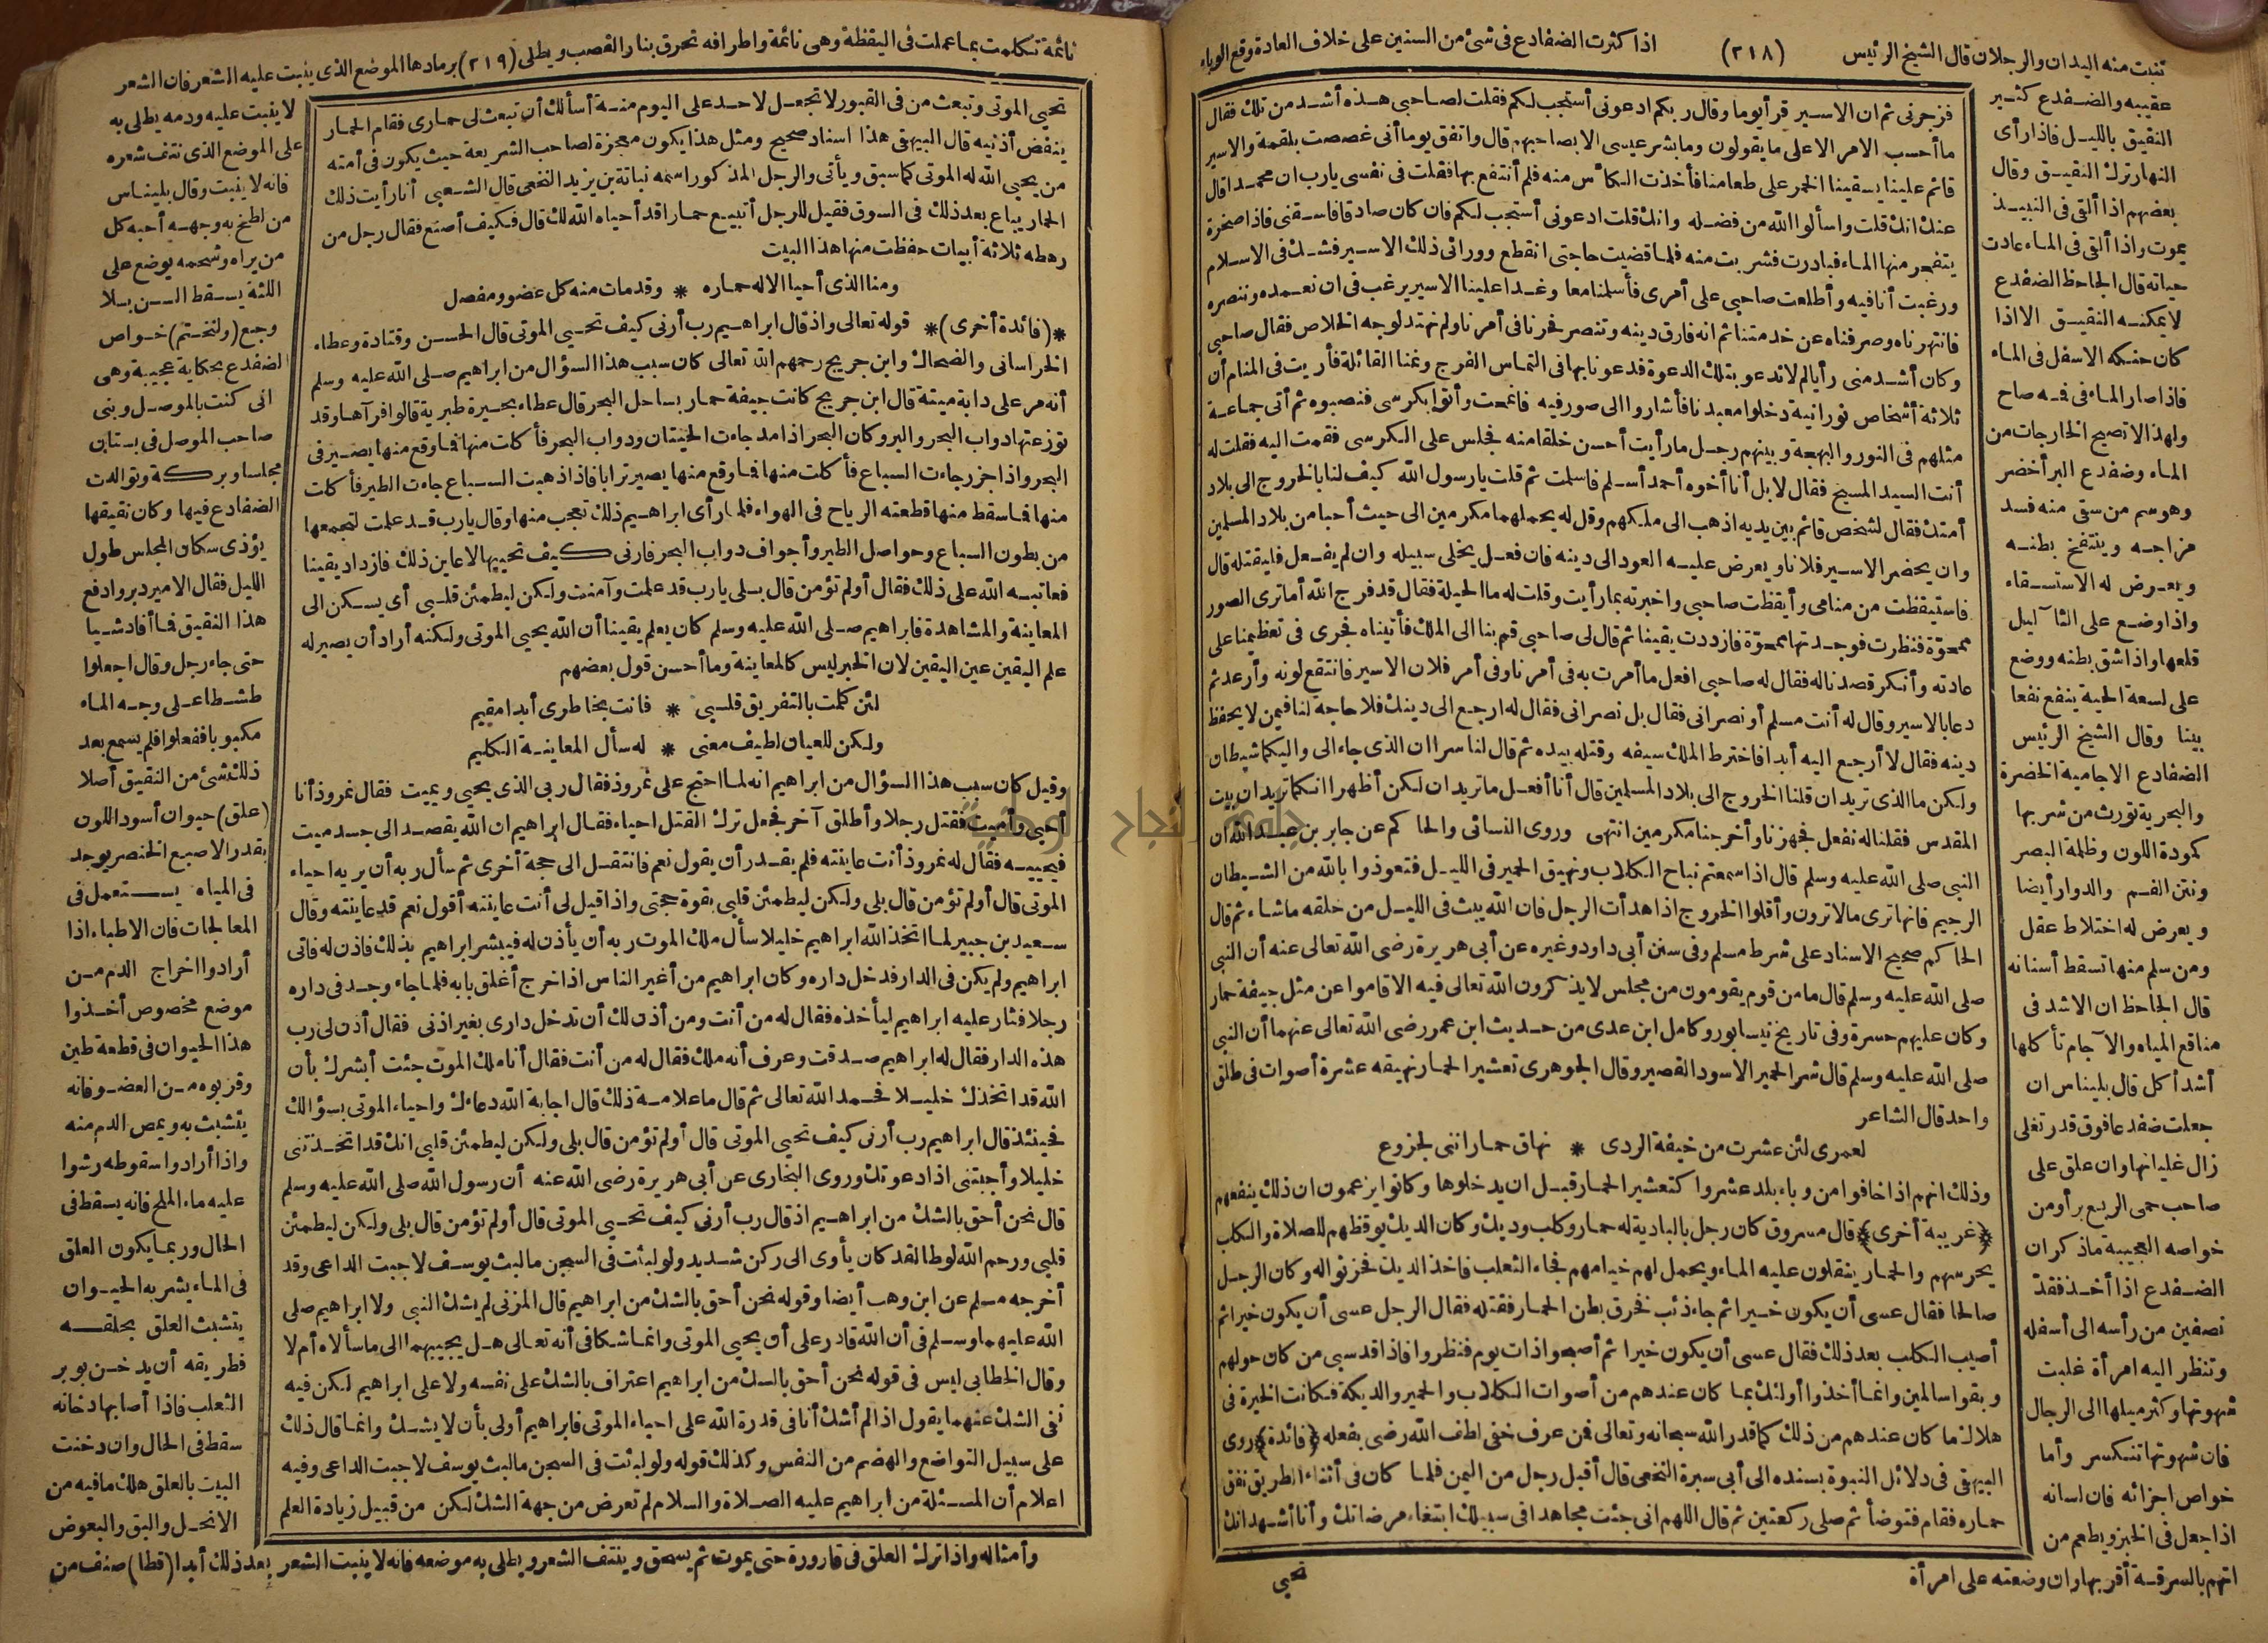 تنبت منه اليدان والرجلان قال الشيخ الرئيس (٢١٨) اذا كثرت الضفادع فى شئ من السنين على خلاف العادة وقع الوباء
فزجرنى ثم ان الاسير قرأ يوما وقال ربكم ادعونى أستجب لكم فقلت لصاحبى هذه أشد من تلك فقال
ما أحسب الامر الا على ما يقولون وما بشر عيسى الا بصاحبهم قال واتفق يوما أنى غصصت بلقمة والاسير
قائم علينا يسقينا الخمر على طعامنا فأخذت الكأس منه فلم أنتفع بها فقلت فى نفسى يارب ان محمدا قال
عنك انك قلت واسألوا الله من فضله وانك قلت ادعونى أستجب لكم فان كان صادقا فاسقنى فاذا صخرة
يتفجر منها الماء فبادرت فشربت منه فلما قضيت حاجتى انقطع وورائى ذلك الاسير فشك فى الاسلام
ورغبت أنا فيه وأطلعت صاحبى على أمرى فأسلمنا معا وغدا علينا الاسير يرغب فى ان نعمده وننصره
فانتهرناه وصرفناه عن خدمتنا ثم انه فارق دينه وتنصر فحرنا فى أمرنا ولم نهتد لوجه الخلاص فقال صاحبى
وكان أشد منى رأيا لم لا ندعو بتلك الدعوة فدعونا بها فى التماس الفرج ونمنا القائلة فأريت فى المنام أن
ثلاثة أشخاص نورانية دخلوا معبدنا فأشاروا الى صور فيه فانمحت وأتوا بكرسى فنصبوه ثم أتى جماعة
مثلهم فى النور والبهجة وبينهم رجل ما رأيت أحسن خلقا منه فجلس على الكرسى فقمت اليه فقلت له
أنت السيد المسيح فقال لا بل أنا أخوه أحمد أسلم فاسلمت ثم قلت يا رسول الله كيف لنا بالخروج الى بلاد
أمتك فقال لشخص قائم بين يديه اذهب الى ملكهم وقل له يحملهما مكرمين الى حيث أحبا من بلاد المسلمين
وان يحضر الاسير فلانا ويعرض عليه العود الى دينه فان فعل يخلى سبيله وان لم يفعل فليقتله قال
فاستيقظت من منامى وأيقظت صاحبى واخبرته بما رأيت وقلت له ما الحيلة فقال قد فرج الله أما ترى الصور
ممحوّة فنظرت فوجدتها ممحوّة فازددت يقينا ثم قال لى صاحبى قم بنا الى الملك فأتيناه فجرى فى تعظيمنا على
عادته وأنكر قصدنا له فقال له صاحبى افعل ما أمرت به فى أمرنا وفى أمر فلان الاسير فانتقع لونه وأرعد ثم
دعا بالاسير وقال له أنت مسلم أو نصرانى فقال بل نصرانى فقال له ارجع الى دينك فلا حاجة لنا فيمن لا يحفظ
دينه فقال لا أرجع اليه أبدا فاخترط الملك سيفه وقتله بيده ثم قال لنا سرا ان الذى جاء الى واليكما شيطان
ولكن ما الذى تريدان قلنا الخروج الى بلاد المسلمين قال أنا أفعل ما تريدان لكن أظهرا انكما تريدان بيت
المقدس فقلنا له نفعل فجهزنا وأخرجنا مكرمين انتهى وروى النسائى والحاكم عن جابر بن عبد الله ان
النبى صلى الله عليه وسلم قال اذا سمعتم نباح الكلاب ونهيق الحمير فى الليل فتعوذوا بالله من الشيطان
الرجيم فانها ترى مالا ترون وأقلوا الخروج اذا هدأت الرجل فان الله يبث فى الليل من خلقه ما شاء ثم قال
الحاكم صحيح الاسناد على شرط مسلم وفى سنن أبى داود وغيره عن أبى هريرة رضى الله تعالى عنه أن النبى
صلى الله عليه وسلم قال ما من قوم يقومون من مجلس لا يذكرون الله تعالى فيه الا قاموا عن مثل جيفة حمار
وكان عليهم حسرة وفى تاريخ نيسابور وكامل ابن عدى من حديث ابن عمر رضى الله تعالى عنهما أن النبى
صلى الله عليه وسلم قال شر الحمير الاسود القصير وقال الجوهرى تعشير الحمار نهيقه عشرة أصوات فى طلق
واحد قال الشاعر
لعمرى لئن عشرت من خيفة الردى * نهاق حمار اننى لجزوع
وذلك انهم اذا خافوا من وباء بلد عشروا كتعشير الحمار قبل ان يدخلوها وكانوا يزعمون ان ذلك ينفعهم
(غريبة أخرى) قال مسروق كان رجل بالبادية له حمار وكلب وديك وكان الديك يوقظهم للصلاة والكلب
يحرسهم والحمار ينقلون عليه الماء ويحمل لهم خيامهم فجاء الثعلب فاخذ الديك فحزنوا له وكان الرجل
صالحا فقال عسى أن يكون خيرا ثم جاء ذئب فخرق بطن الحمار فقتله فقال الرجل عسى أن يكون خيرا ثم
أصيب الكلب بعد ذلك فقال عسى أن يكون خيرا ثم أصبحوا ذات يوم فنظروا فاذا قد سبى من كان حولهم
وبقوا سالمين وانما أخذوا أولئك بما كان عندهم من أصوات الكلاب والحمير والديكة فكانت الخيرة فى
هلاك ما كان عندهم من ذلك كما قدر الله سبحانه وتعالى فمن عرف خفى لطف الله رضى بفعله (فائدة) روى
البيهقى فى دلائل النبوة بسنده الى أبى سبرة النخعى قال أقبل رجل من اليمن فلما كان فى أثناء الطريق نفق
حماره فقام فتوضأ ثم صلى ركعتين ثم قال اللهم انى جئت مجاهدا فى سبيلك ابتغاء مرضاتك وأنا أشهد انك
تحيى
عقيبه والضفدع كثير
النقيق بالليل فاذا رأى
النهار ترك النقيق وقال
بعضهم اذا ألقى فى النبيذ
يموت واذا ألقى فى الماء عادت
حياته قال الجاحظ الضفدع
لا يمكنه النقيق الا اذا
كان حنكه الاسفل فى الماء
فاذا صار الماء فى فيه صاح
ولهذا لا تصيح الخارجات من
الماء وضفدع البر أخضر
وهو سم من سقى منه فسد
مزاجه وينتفخ بطنه
ويعرض له الاستسقاء
واذا وضع على الثآليل
قلعها واذا شق بطنه ووضع
على لسعة الحية ينفع نفعا
بينا وقال الشيخ الرئيس
الضفادع الاجامية الخضرة
والبحرية تورث من شربها
كمودة اللون وظلمة البصر
ونتن الفم والدوار أيضا
ويعرض له اختلاط عقل
ومن سلم منها تسقط أسنانه
قال الجاحظ ان الاسد فى
مناقع المياه والآجام تأكلها
أشد أكل قال بليناس ان
جعلت ضفدعا فوق قدر تغلى
زال غليانها وان علق على
صاحب حمى الربع برأ ومن
خواصه العجيبة ما ذكر ان
الضفدع اذا أخذ فقدّ
نصفين من رأسه الى أسفله
وتنظر اليه امرأة غلبت
شهوتها وكثر ميلها الى الرجال
فان شهوتها تنكسر وأما
خواص اجزائه فان لسانه
اذا جعل فى الخبز ويطعم من
اتهم بالسرقة أقر بها وان وضعته على امرأة
نائمة تكلمت بما عملت فى اليقظة وهى نائمة واطرافه تحرق بنار القصب ويطلى (٢١٩) برمادها الموضع الذى ينبت عليه الشعر فان الشعر
تحيى الموتى وتبعث من فى القبور لا تجعل لاحد على اليوم منة أسألك أن تبعث لى حمارى فقام الحمار
ينفض أذنيه قال البيهقى هذا اسناد صحيح ومثل هذا يكون معجزة لصاحب الشريعة حيث يكون فى أمته
من يحيى الله له الموتى كما سبق ويأتى والرجل المذكور اسمه نباتة بن يزيد النخعى قال الشعبى أنا رأيت ذلك
الحمار يباع بعد ذلك فى السوق فقيل للرجل أتبيع حمارا قد أحياه الله لك قال فكيف أصنع فقال رجل من
رهطه ثلاثة أبيات حفظت منها هذا البيت
ومنا الذى أحيا الاله حماره * وقد مات منه كل عضو ومفصل
*(فائدة أخرى)* قوله تعالى واذ قال ابراهيم رب أرنى كيف تحيى الموتى قال الحسن وقتادة وعطاء
الخراسانى والضحاك وابن جريج رحمهم الله تعالى كان سبب هذا السؤال من ابراهيم صلى الله عليه وسلم
أنه مر على دابة ميتة قال ابن جريج كانت جيفة حمار بساحل البحر قال عطاء بحيرة طبرية قالوا فرآها وقد
توزعتها دواب البحر والبر وكان البحر اذا مد جاءت الحيتان ودواب البحر فأكلت منها فما وقع منها يصير فى
البحر واذا جزر جاءت السباع فأكلت منها فما وقع منها يصير ترابا فاذا ذهبت السباع جاءت الطير فأكلت
منها فما سقط منها قطعته الرياح فى الهواء فلما رأى ابراهيم ذلك تعجب منها وقال يارب قد علمت لتجمعها
من بطون السباع وحواصل الطير وأجواف دواب البحر فارنى كيف تحييها لاعاين ذلك فازداد يقينا
فعاتبه الله على ذلك فقال أولم تؤمن قال بلى يارب قد علمت وآمنت ولكن ليطمئن قلبى أى يسكن الى
المعاينة والمشاهدة فابراهيم صلى الله عليه وسلم كان يعلم يقينا أن الله يحيى الموتى ولكنه أراد أن يصير له
علم اليقين عين اليقين لان الخبر ليس كالمعاينة وما أحسن قول بعضهم
لئن كلمت بالتفريق قلبى * فانت بخاطرى أبدا مقيم
ولكن للعيان لطيف معنى * له سأل المعاينة الكليم
وقيل كان سبب هذا السؤال من ابراهيم انه لما احتج على نمروذ فقال ربى الذى يحيى ويميت فقال نمروذ أنا
أحيى وأميت فقتل رجلا وأطلق آخر فجعل ترك القتل احياء فقال ابراهيم ان الله يقصد الى جسد ميت
فيحييه فقال له نمروذ أنت عاينته فلم يقدر أن يقول نعم فانتقل الى حجة أخرى ثم سأل ربه أن يريه احياء
الموتى قال أولم تؤمن قال بلى ولكن ليطمئن قلبى بقوة حجتى واذا قيل لى أنت عاينته أقول نعم قد عاينته وقال
سعيد بن جبير لما اتخذ الله ابراهيم خليلا سأل ملك الموت ربه أن يأذن له فيبشر ابراهيم بذلك فاذن له فاتى
ابراهيم ولم يكن فى الدار فدخل داره وكان ابراهيم من أغير الناس اذا خرج أغلق بابه فلما جاء وجد فى داره
رجلا فثار عليه ابراهيم ليأخذه فقال له من أنت ومن أذن لك أن تدخل دارى بغير اذنى فقال أذن لى رب
هذه الدار فقال له ابراهيم صدقت وعرف أنه ملك فقال له من أنت فقال أنا ملك الموت جئت أبشرك بأن
الله قد اتخذك خليلا فحمد الله تعالى ثم قال ما علامة ذلك قال اجابة الله دعاءك واحياء الموتى بسؤالك
فحينئذ قال ابراهيم رب أرنى كيف تحيى الموتى قال أولم تؤمن قال بلى ولكن ليطمئن قلبى انك قد اتخذتنى
خليلا وأجبتنى اذا دعوتك وروى البخارى عن أبى هريرة رضى الله عنه أن رسول الله صلى الله عليه وسلم
قال نحن أحق بالشك من ابراهيم اذ قال رب أرنى كيف تحيى الموتى قال أولم تؤمن قال بلى ولكن ليطمئن
قلبى ورحم الله لوطا لقد كان يأوى الى ركن شديد ولو لبثت فى السجن ما لبث يوسف لاجبت الداعى وقد
أخرجه مسلم عن ابن وهب أيضا وقوله نحن أحق بالشك من ابراهيم قال المزنى لم يشك النبى ولا ابراهيم صلى
الله عليهما وسلم فى أن الله قادر على أن يحيى الموتى وانما شكا فى أنه تعالى هل يجيبهما الى ما سألاه أم لا
وقال الخطابى ليس فى قوله نحن أحق بالشك من ابراهيم اعتراف بالشك على نفسه ولا على ابراهيم لكن فيه
نفى الشك عنهما يقول اذا لم أشك أنا فى قدرة الله على احياء الموتى فابراهيم أولى بأن لا يشك وانما قال ذلك
على سبيل التواضع والهضم من النفس وكذلك قوله ولو لبثت فى السجن ما لبث يوسف لاجبت الداعى وفيه
اعلام أن المسئلة من ابراهيم عليه الصلاة والسلام لم تعرض من جهة الشك لكن من قبيل زيادة العلم
لا ينبت عليه ودمه يطلى به
على الموضع الذى نتف شعره
فانه لا ينبت وقال بليناس
من لطخ به وجهه أحبه كل
من يراه وشحمه يوضع على
اللثة يسقط السن بلا
وجع (ولنختم) خواص
الضفدع بحكاية عجيبة وهى
انى كنت بالموصل وبنى
صاحب الموصل فى بستان
مجلسا وبركة وتوالدت
الضفادع فيها وكان نقيقها
يؤذى سكان المجلس طول
الليل فقال الامير دبروا دفع
هذا النقيق فما أفاد شيا
حتى جاء رجل وقال اجعلوا
طشطا على وجه الماء
مكبوبا ففعلوا فلم يسمع بعد
ذلك شئ من النقيق أصلا
(علق) حيوان أسود اللون
بقدر الاصبع الخنصر يوجد
فى المياه يستعمل فى
المعالجات فان الاطباء اذا
أرادوا اخراج الدم من
موضع مخصوص أخذوا
هذا الحيوان فى قطعة طين
وقربوه من العضو فانه
يتشبث به ويمص الدم منه
واذا أرادوا سقوطه رشوا
عليه ماء الملح فانه يسقط فى
الحال وربما يكون العلق
فى الماء يشربه الحيوان
يتشبث العلق بحلقه
فطريقه أن يدخن بوبر
الثعلب فاذا أصابها دخانه
سقط فى الحال وان دخنت
البيت بالعلق هلك ما فيه من
الانحل والبق والبعوض
وأمثاله واذا ترك العلق فى قارورة حتى يموت ثم يسحق وينتف الشعر ويطلى به موضعه فانه لا ينبت الشعر بعد ذلك أبدا (قطا) صنف من